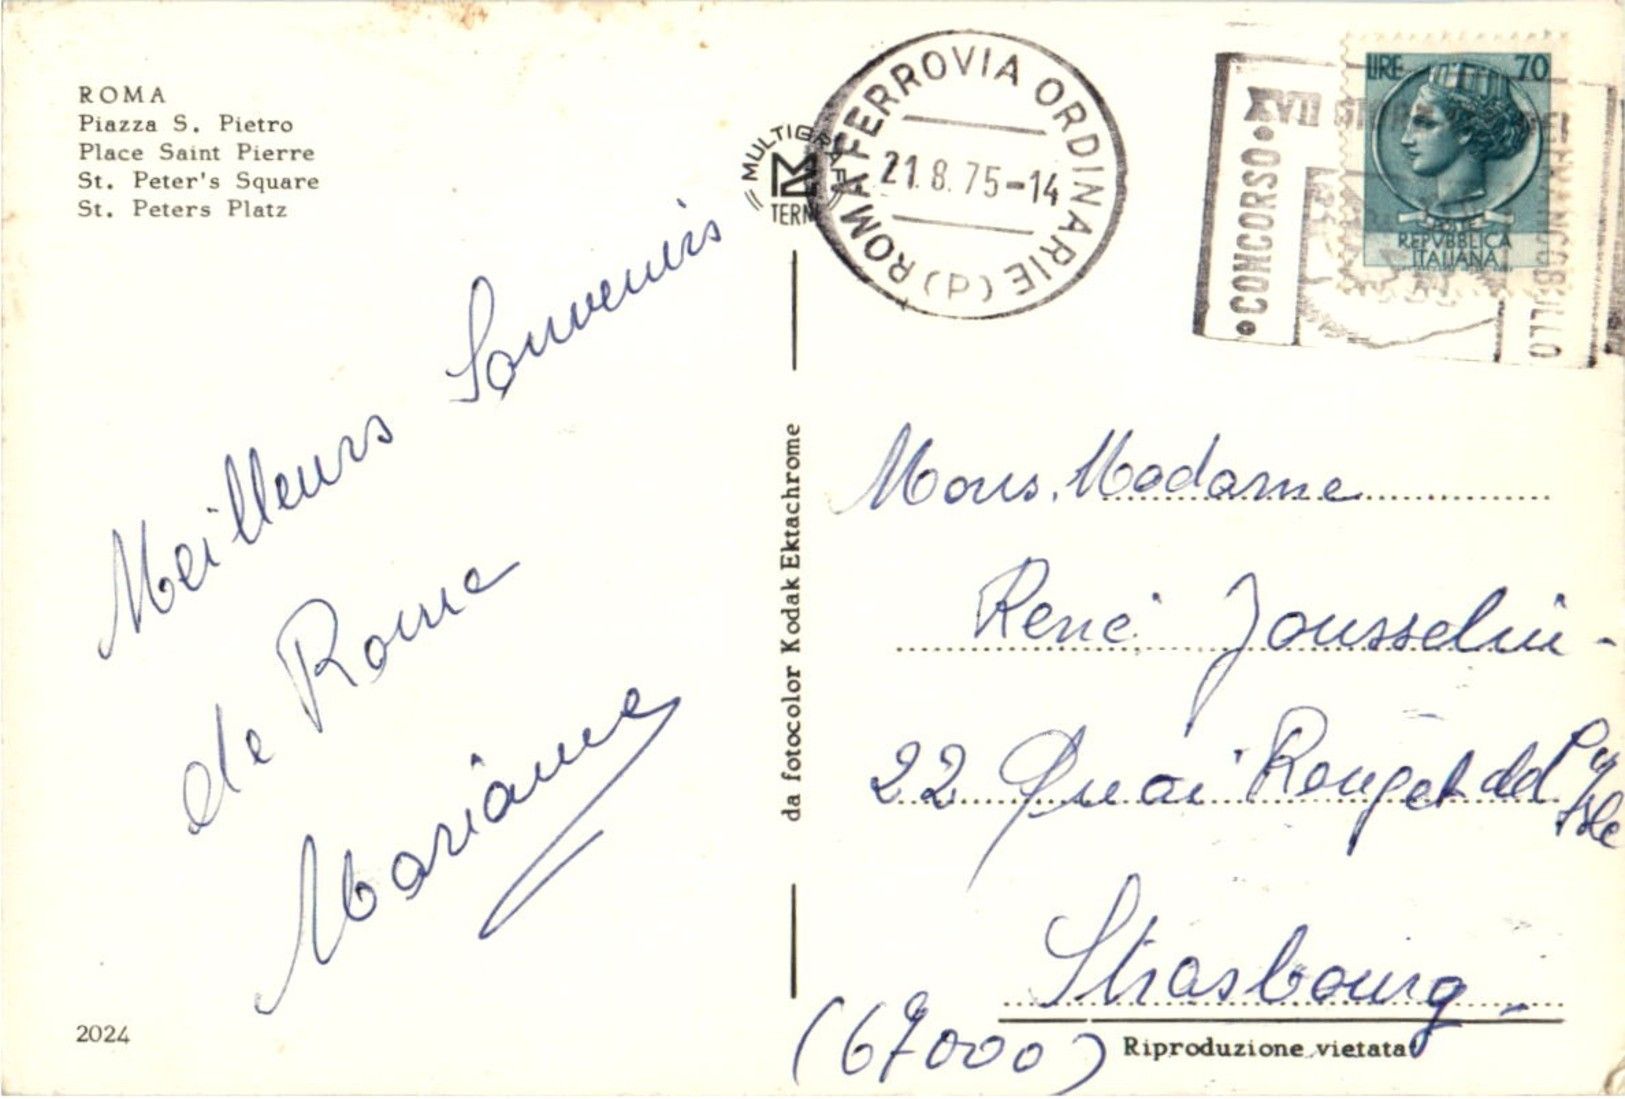 ROMA
Piazza S. Pietro
Place Saint Pierre
St. Peter's Square
St. Peters Platz
Meilleurs Souvenirs
de Rome
Marianne
2024
MULTIGRAFICA
TERNI
da fotocolor Kodak Ektachrome
ROMA FERROVIA ORDINARIE (P)
21.8.75-14
LIRE 70
POSTE
REPVBBLICA
ITALIANA
XVII
•CONCORSO•
DEL FRANCOBOLLO
Mons. Madame
René Jousselin -
22 Quai Rouget de
Isle
Strasbourg -
(67000)
Riproduzione vietata